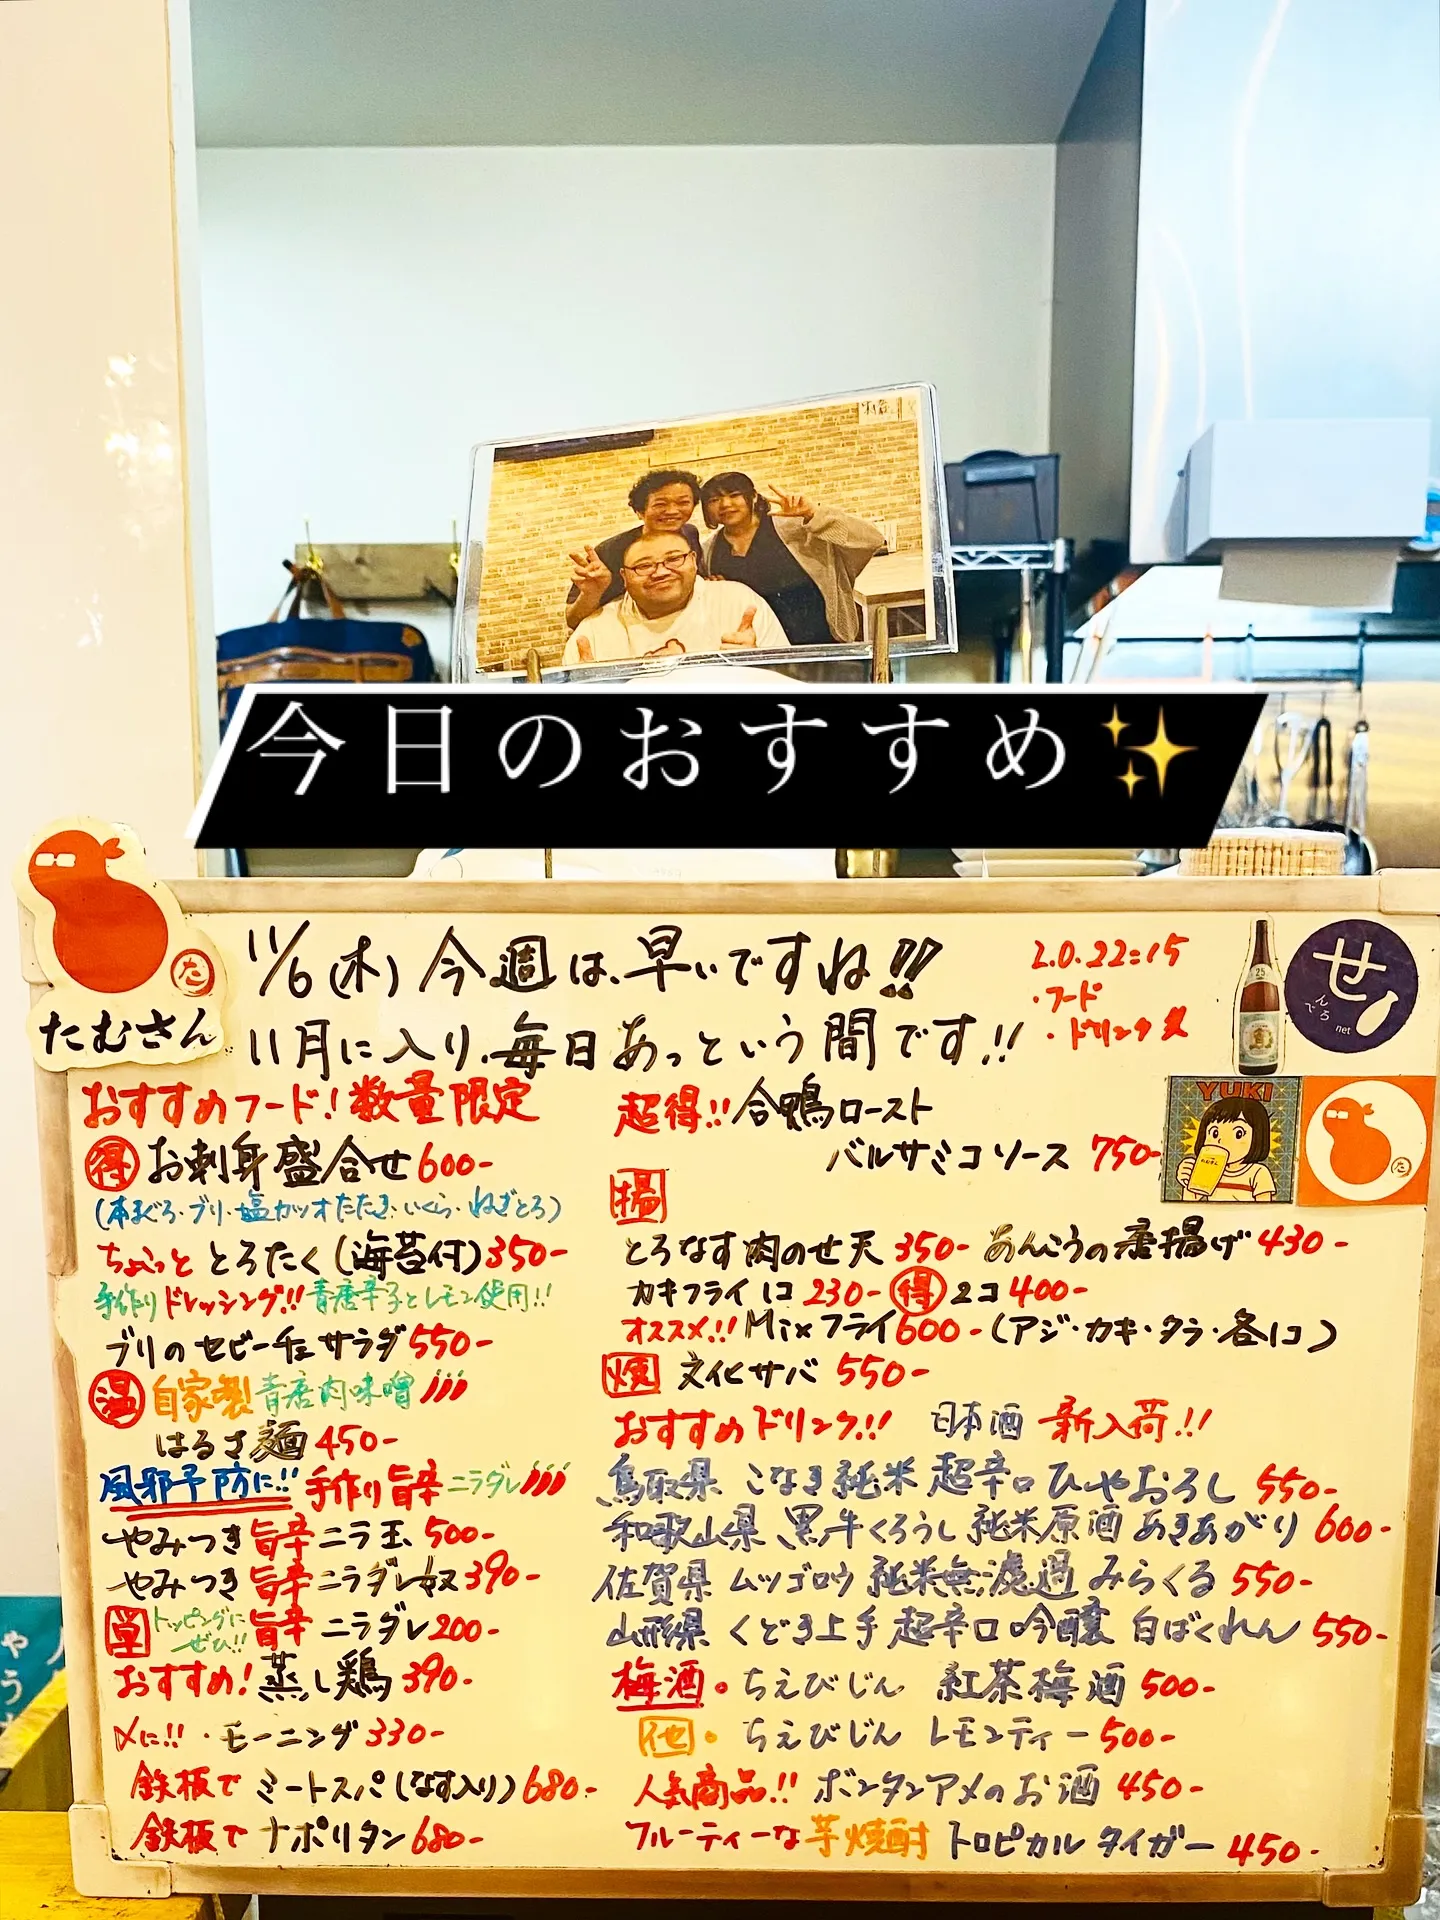 今日のおすすめ✨
たむさん
た
11/6(木)今週は、早いですね!!
11月に入り、毎日あっという間です!!
L.O.22:15
・フード
・ドリンク
せ
んでろ
net
YUKI
た
おすすめフード!数量限定
得 お刺身盛合せ600-
(本まぐろ・ブリ・塩カツオたたき・いくら・ねぎとろ)
ちょこっと とろたく(海苔付)350-
手作りドレッシング!!青唐辛子とレモン使用!!
ブリのセビーチェサラダ550-
温 自家製青唐肉味噌
はるさ麺450-
風邪予防に!!手作り旨辛ニラダレ
やみつき旨辛ニラ玉500-
やみつき旨辛ニラダレ奴390-
単 トッピングにぜひ!!旨辛ニラダレ200-
おすすめ!蒸し鶏390-
〆に!!・モーニング330-
鉄板でミートスパ(なす入り)680-
鉄板でナポリタン680-
超得!!合鴨ロースト
バルサミコソース 750-
揚
とろなす肉のせ天350- あんこうの唐揚げ430-
カキフライ1コ230- 得 2コ400-
オススメ!!Mixフライ600-(アジ・カキ・タラ・各1コ)
焼 文化サバ 550-
おすすめドリンク!! 日本酒 新入荷!!
鳥取県 こなき純米 超辛口ひやおろし 550-
和歌山県 黒牛くろうし純米原酒あきあがり 600-
佐賀県 ムツゴロウ 純米無濾過みらくる 550-
山形県 くどき上手 超辛口吟醸 白ばくれん 550-
梅酒・ちえびじん 紅茶梅酒 500-
他・ちえびじん レモンティー500-
人気商品!! ボンタンアメのお酒 450-
フルーティーな芋焼酎 トロピカルタイガー 450-